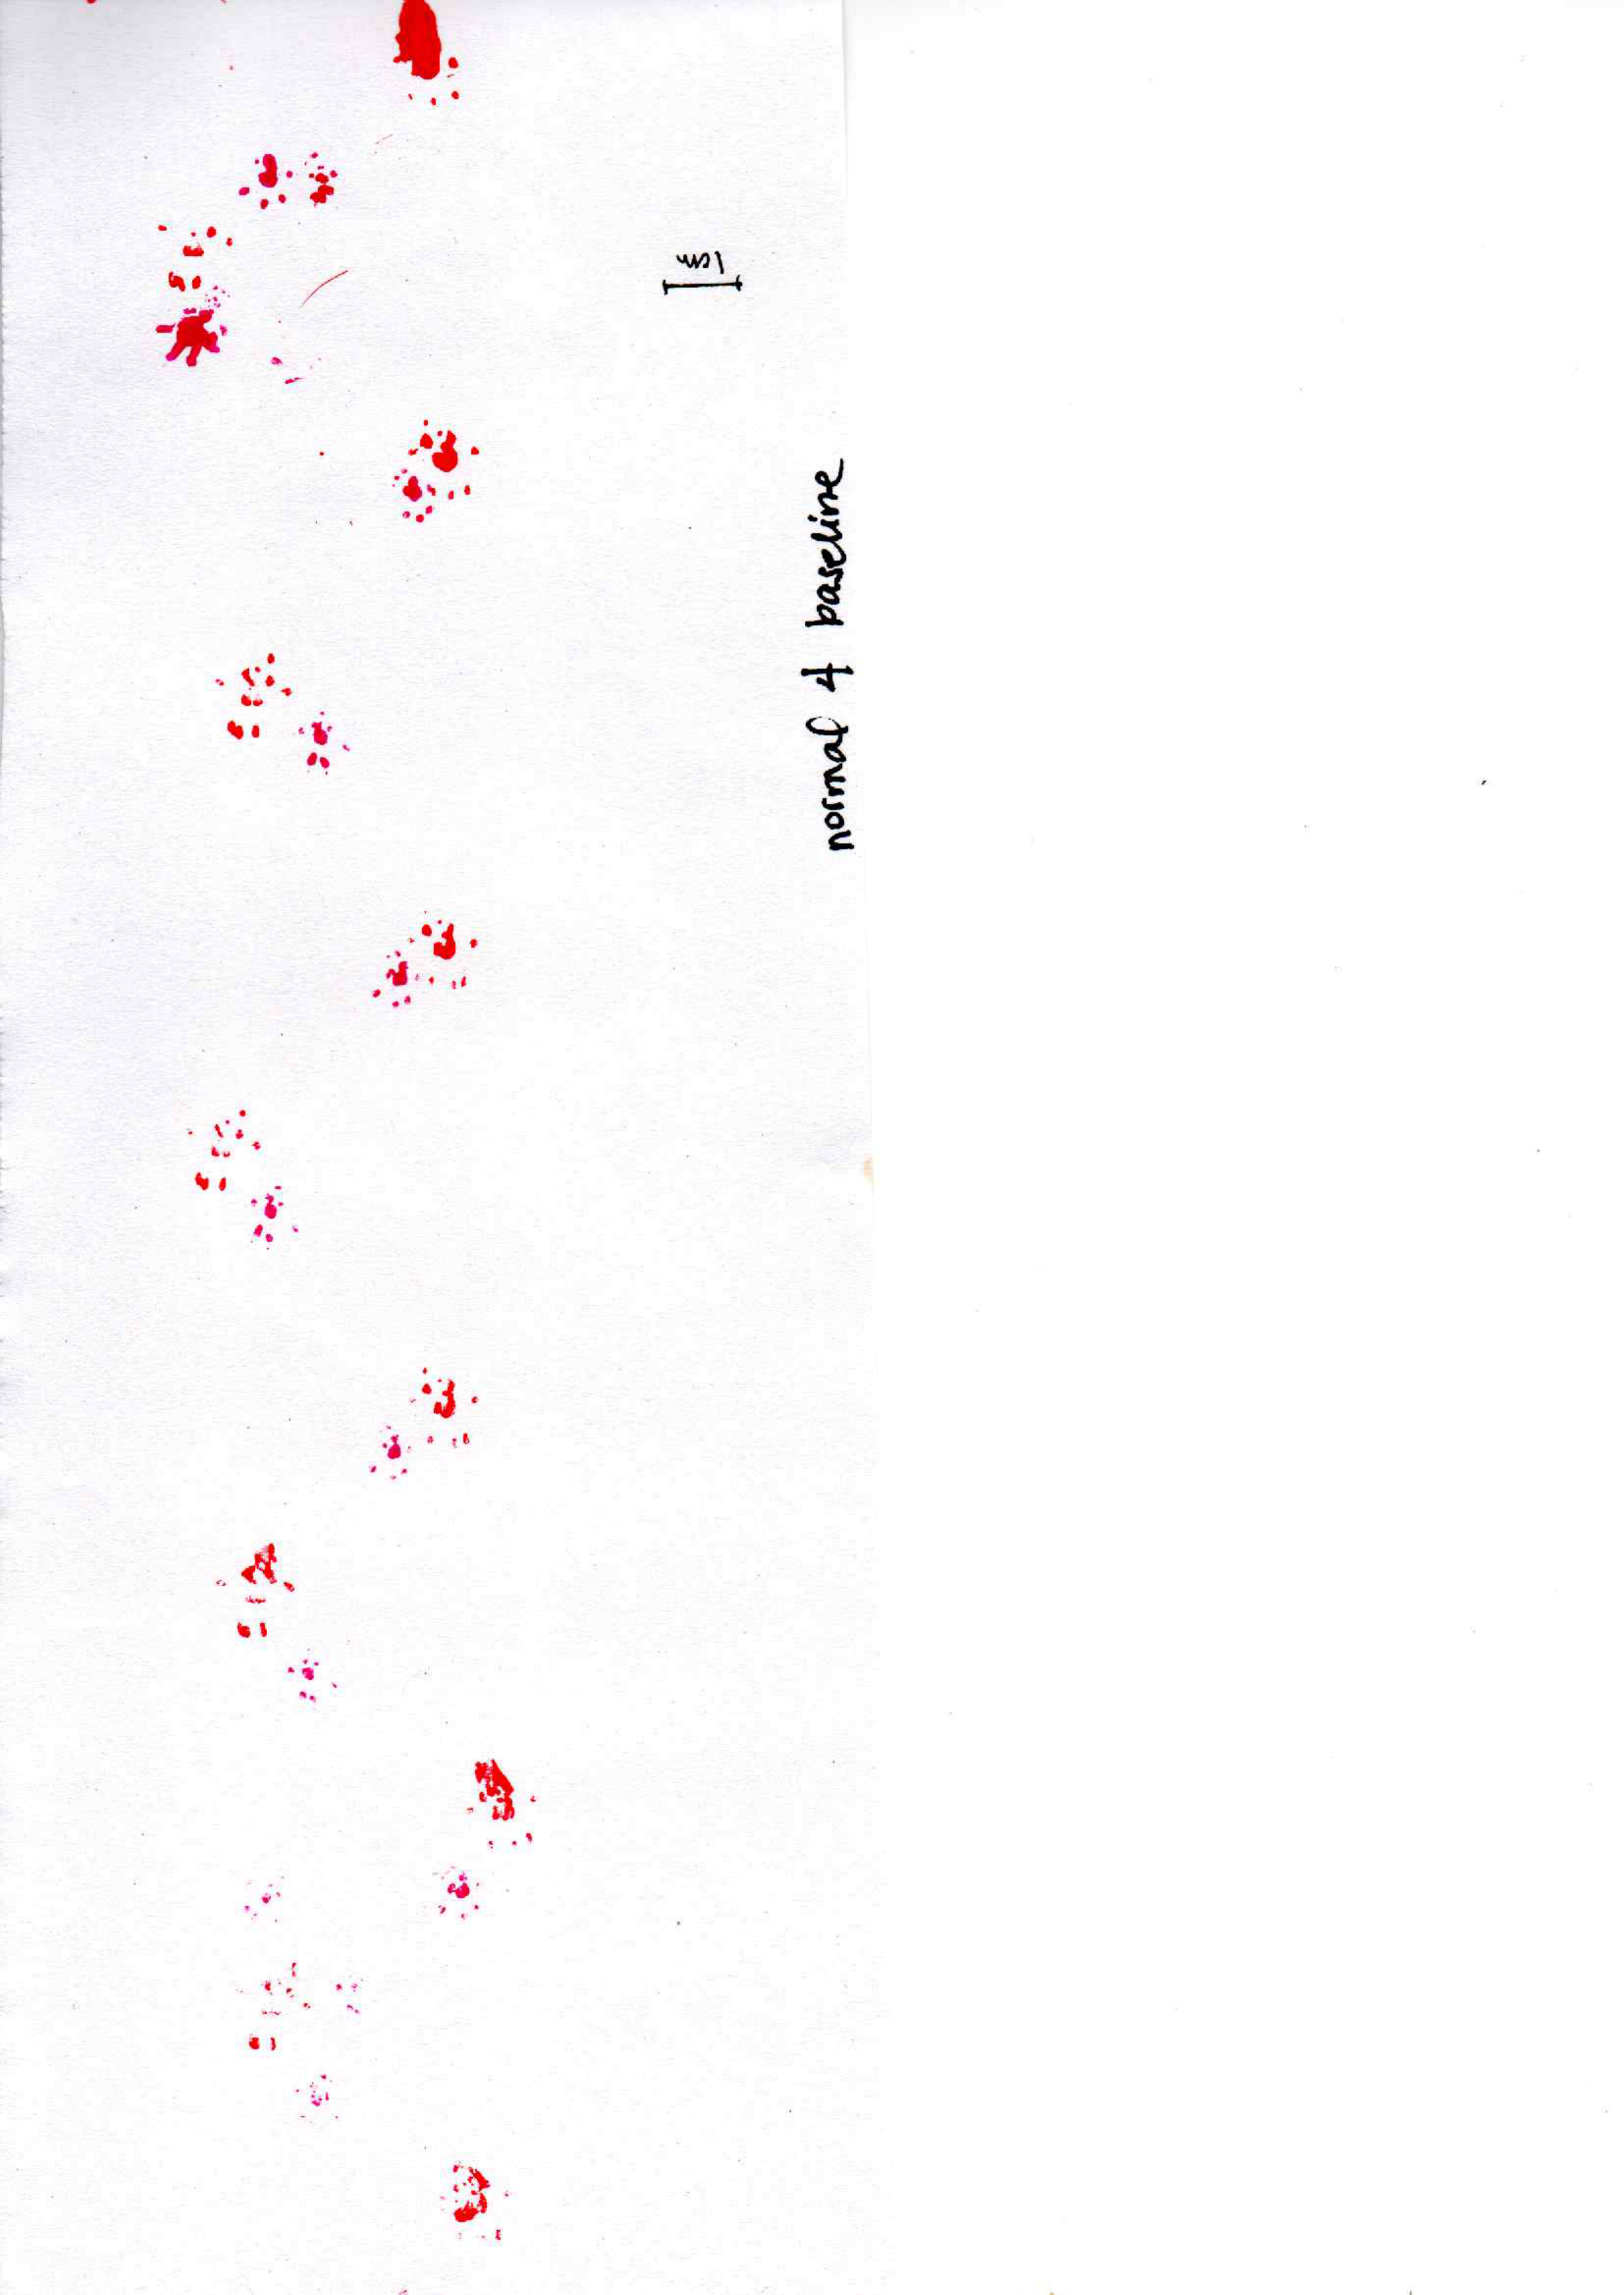 1cm
normal 4 baseline